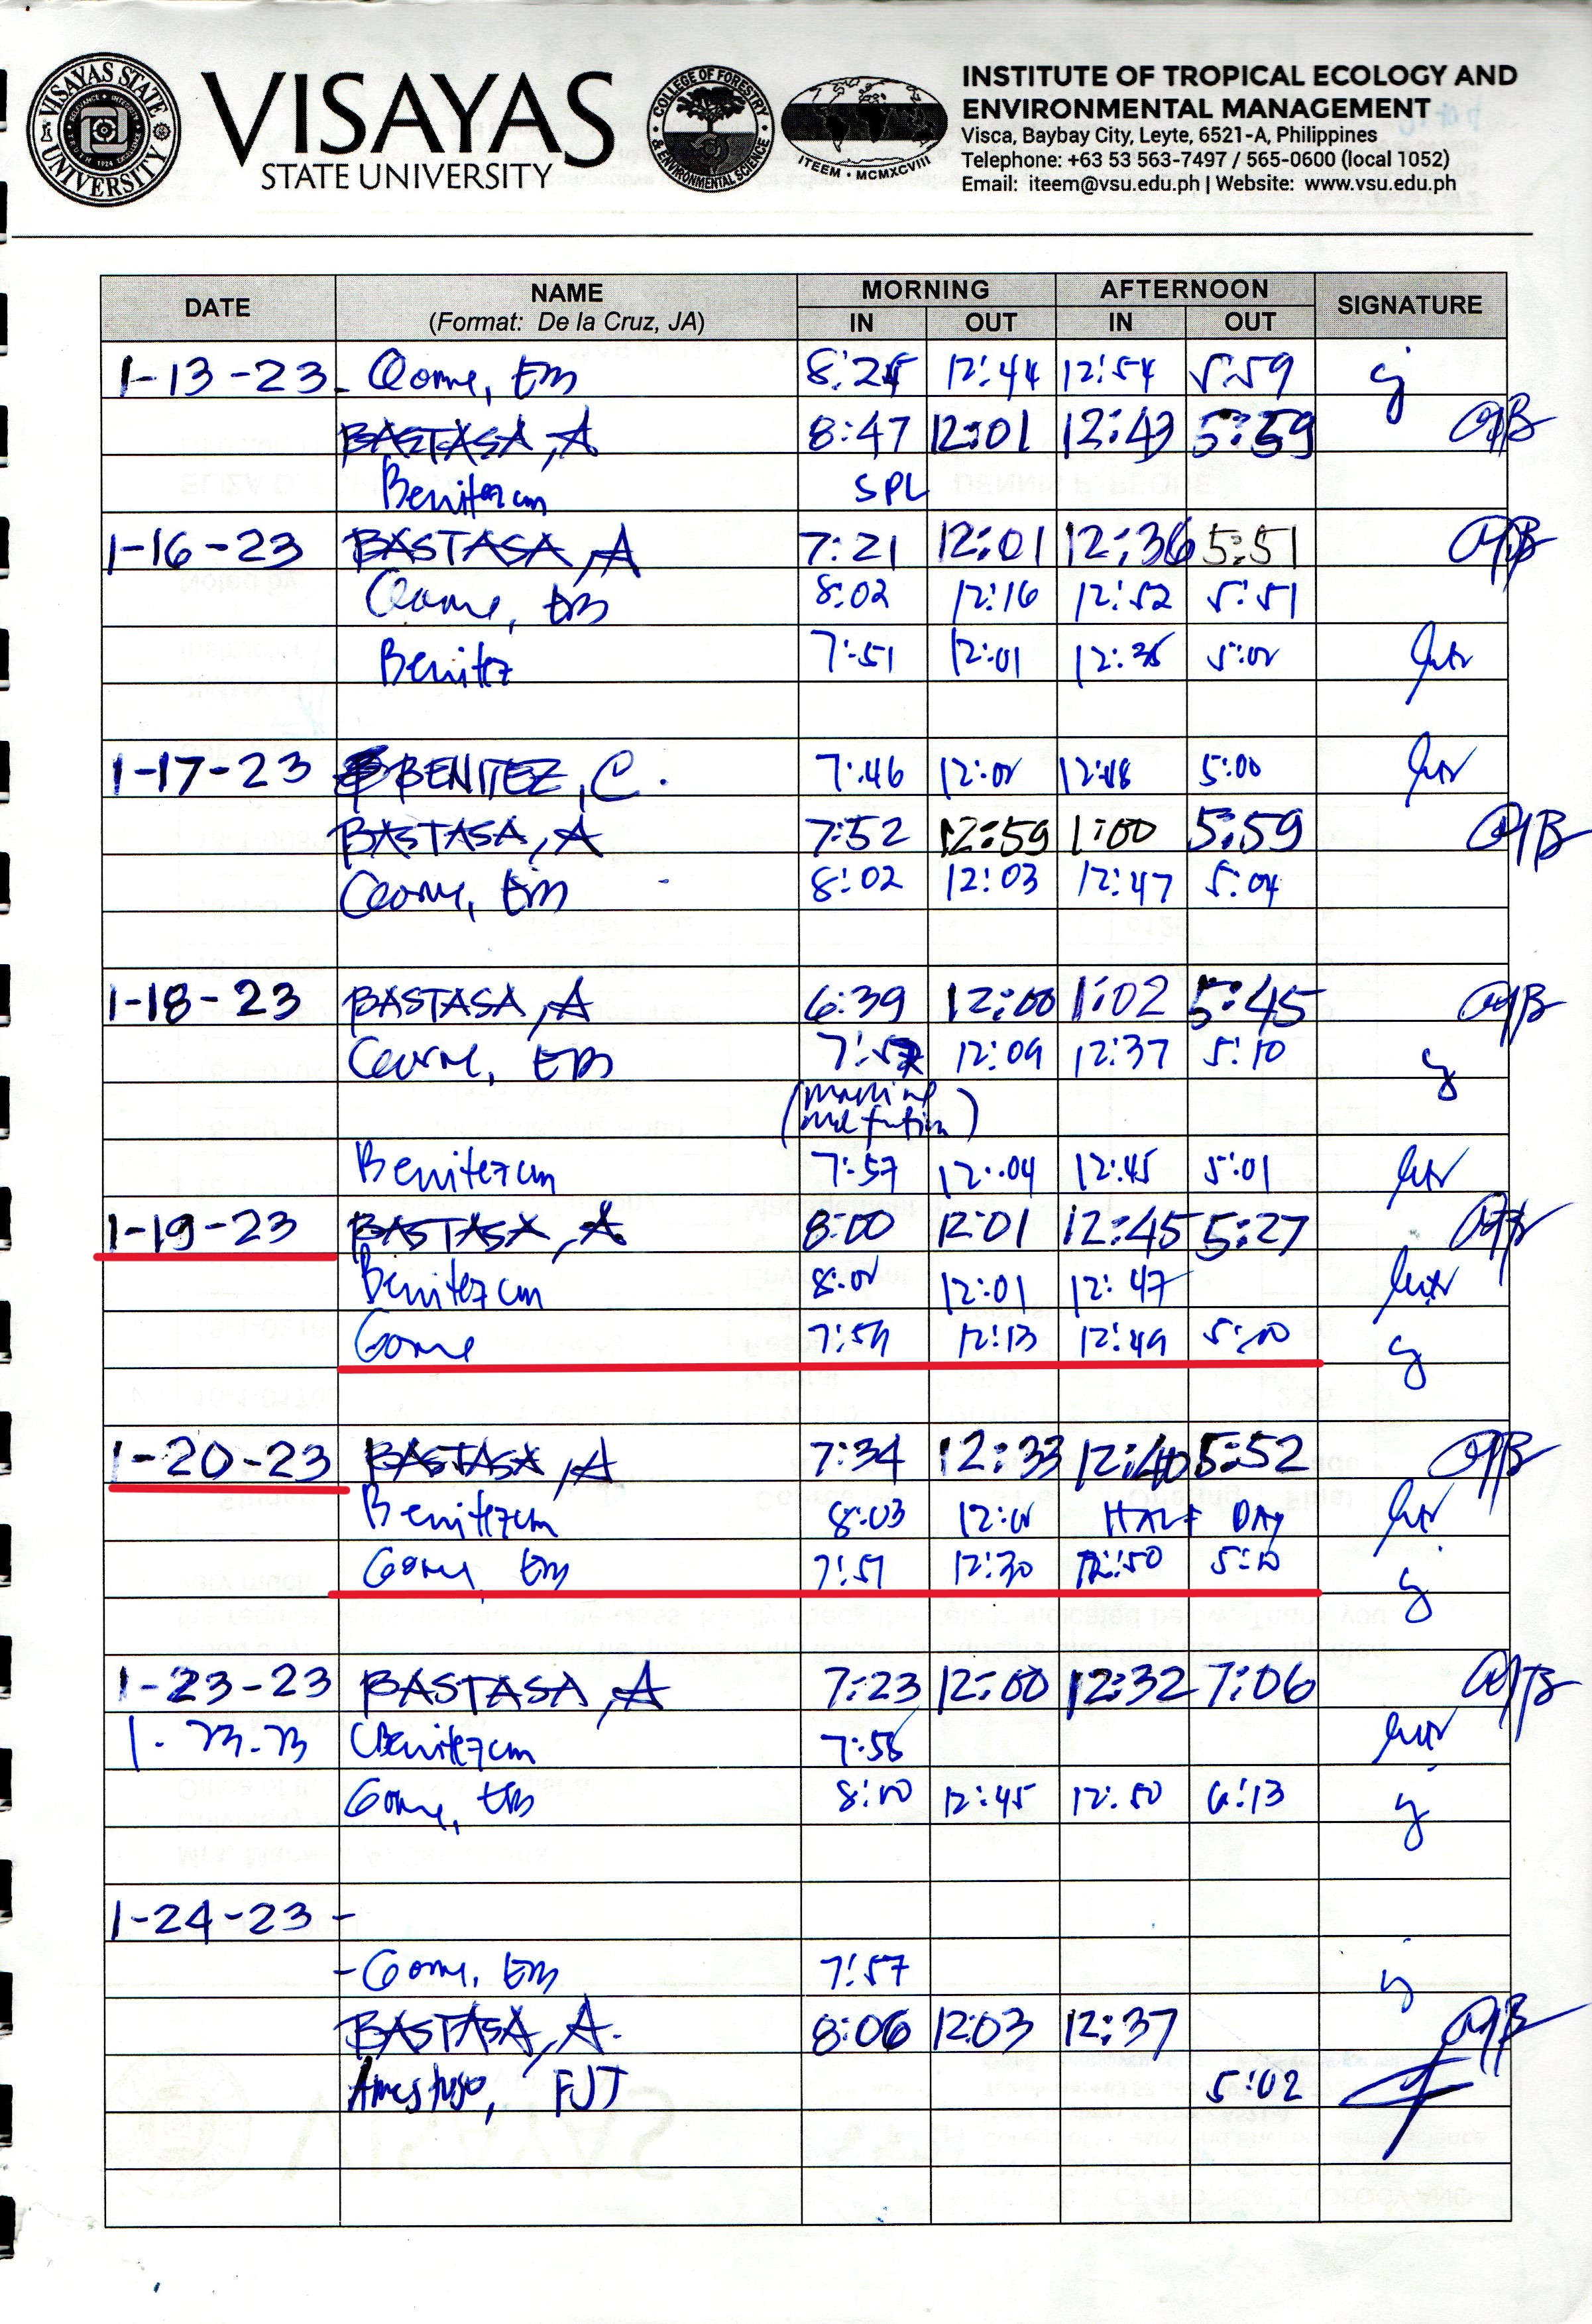 VISAYAS STATE UNIVERSITY
VISAYAS
STATE UNIVERSITY
COLLEGE OF FORESTRY & ENVIRONMENTAL SCIENCE
ITEEM • MCMXCVIII
INSTITUTE OF TROPICAL ECOLOGY AND
ENVIRONMENTAL MANAGEMENT
Visca, Baybay City, Leyte, 6521-A, Philippines
Telephone: +63 53 563-7497 / 565-0600 (local 1052)
Email: iteem@vsu.edu.ph | Website: www.vsu.edu.ph
DATE NAME MORNING AFTERNOON SIGNATURE
(Format: De la Cruz, JA) IN OUT IN OUT
1-13-23 EM 8:25 12:44 12:54 5:59
BASTASA, A 8:47 12:01 12:43 5:59
Benitez cm SPL
1-16-23 BASTASA, A 7:21 12:01 12:36 5:51
EM 8:02 12:16 12:52 5:51
Benitez 7:51 12:01 12:36 5:01
1-17-23 BENITEZ, C. 7:46 12:01 12:48 5:00
BASTASA, A 7:52 12:59 1:00 5:59
EM 8:02 12:03 12:47 5:04
1-18-23 BASTASA, A 6:39 12:00 1:02 5:45
EM 7:57 12:09 12:37 5:10
Benitez cm 7:57 12:04 12:45 5:01
1-19-23 BASTASA, A 8:00 12:01 12:45 5:27
Benitez cm 8:01 12:01 12:47
7:59 12:13 12:49 5:10
1-20-23 BASTASA, A 7:34 12:33 12:40 5:52
Benitez cm 8:03 12:01 HALF DAY
EM 7:51 12:30 12:50 5:10
1-23-23 BASTASA, A 7:23 12:00 12:32 7:06
1-23-23 Benitez cm 7:58
EM 8:10 12:45 12:50 6:13
1-24-23 -
- EM 7:57
BASTASA, A. 8:06 1203 12:37
FJT 5:02